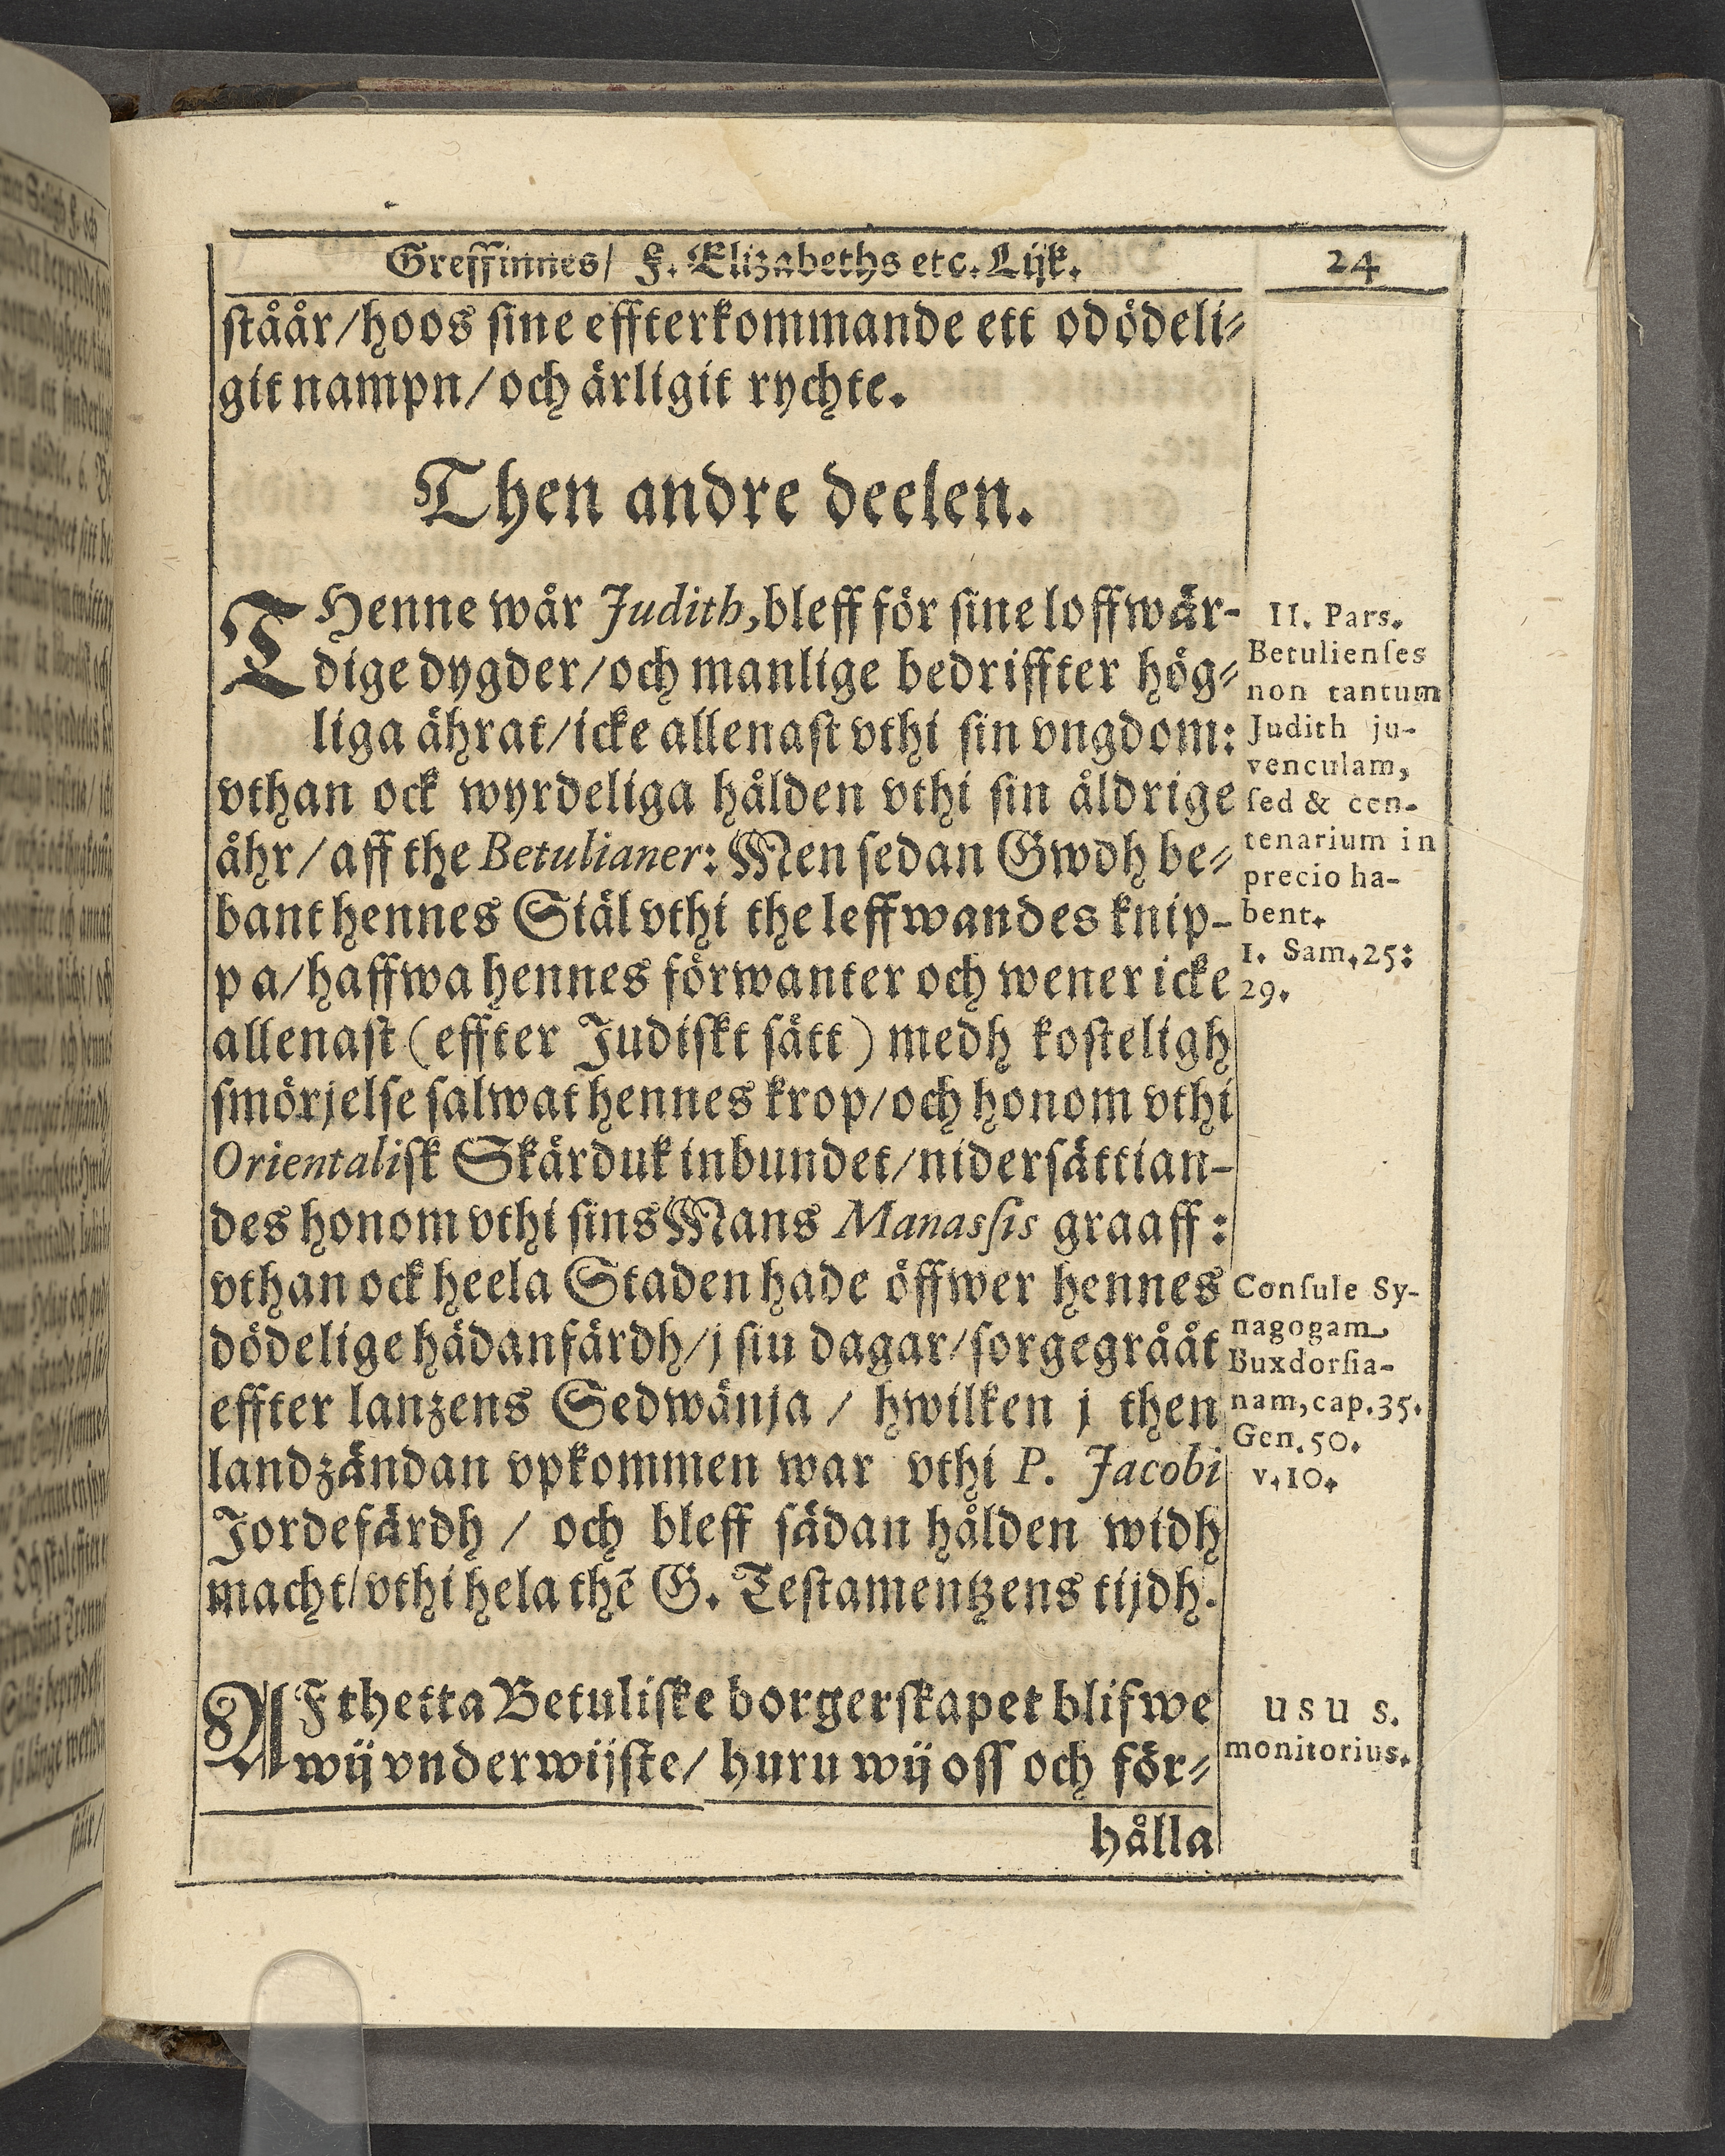 Greffinnes/ F. Elizabeths etc. Lijk.
24
ståår/hoos sine effterkommande ett odödeli-
git nampn/och ärligit rychte.
Then andre deelen.
THenne wår Judith, bleff för sine loffwär-
dige dygder/och manlige bedriffter hög-
liga ährat/icke allenast vthi sin vngdom:
vthan ock wyrdeliga hålden vthi sin åldrige
åhr/aff the Betulianer: Men sedan Gwdh be-
bant hennes Siäl vthi the leffwandes knip-
pa/haffwa hennes förwanter och wener icke
allenast (effter Judiskt sätt) medh kosteligh
smörjelse salwat hennes krop/och honom vthi
Orientalisk Skärduk inbundet/nidersättian-
des honom vthi sins Mans Manassis graaff:
vthan ock heela Staden hade öffwer hennes
dödelige hädanfärdh/j siu dagar/sorgegrååt
effter lanzens Sedwänja / hwilken j then
landzändan vpkommen war vthi P. Jacobi
Jordefärdh / och bleff sådan hålden widh
macht/vthi hela thē G. Testamentzens tijdh.
AF thetta Betuliske borgerskapet blifwe
wij vnderwijste/ huru wij oss och för-
hålla
II. Pars.
Betulienses
non tantum
Judith ju-
venculam,
sed & cen-
tenarium in
precio ha-
bent.
1. Sam. 25:
29.
Consule Sy-
nagogam
Buxdorfia-
nam, cap. 35.
Gen. 50.
v. 10.
usus.
monitorius.